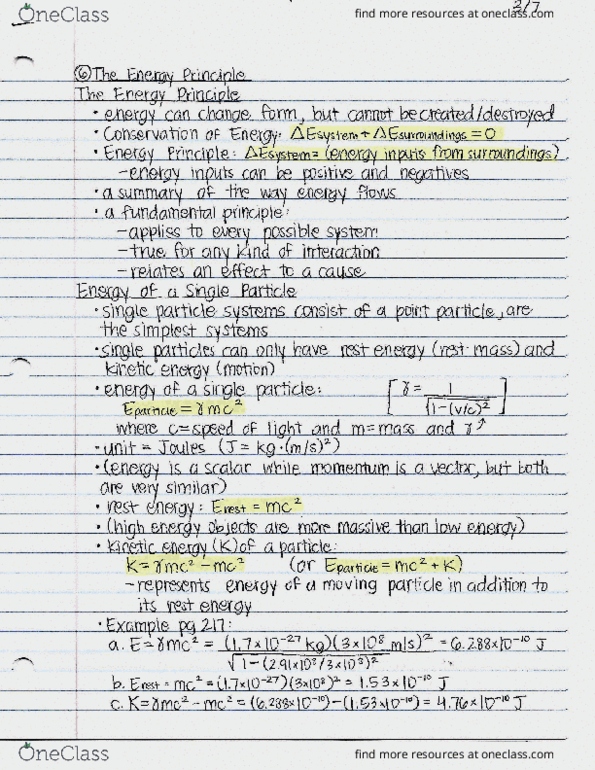 OneClass
find more resources at oneclass.com
2/7
⑥ The Energy Principle
The Energy Principle
• energy can change form, but cannot be created/destroyed
• Conservation of Energy: ΔEsystem + ΔEsurroundings = 0
• Energy Principle: ΔEsystem = (energy inputs from surroundings)
- energy inputs can be positive and negatives
• a summary of the way energy flows
• a fundamental principle:
- applies to every possible system
- true for any kind of interaction
- relates an effect to a cause
Energy of a Single Particle
• single particle systems consist of a point particle, are
the simplest systems
• single particles can only have rest energy (rest mass) and
kinetic energy (motion)
• energy of a single particle: [γ = 1/√(1-(v/c)²)]
Eparticle = γmc²
where c = speed of light and m = mass and γ↗
• unit = Joules (J = kg·(m/s)²)
• (energy is a scalar while momentum is a vector, but both
are very similar)
• rest energy: Erest = mc²
• (high energy objects are more massive than low energy)
• kinetic energy (K) of a particle:
K = γmc² - mc² (or Eparticle = mc² + K)
- represents energy of a moving particle in addition to
its rest energy
• Example pg 217:
a. E = γmc² = (1.7×10⁻²⁷ kg)(3×10⁸ m/s)² / √(1-(2.91×10⁸/3×10⁸)²) = 6.288×10⁻¹⁰ J
b. Erest = mc² = (1.7×10⁻²⁷)(3×10⁸)² = 1.53×10⁻¹⁰ J
c. K = γmc² - mc² = (6.288×10⁻¹⁰) - (1.53×10⁻¹⁰) = 4.76×10⁻¹⁰ J
OneClass
find more resources at oneclass.com